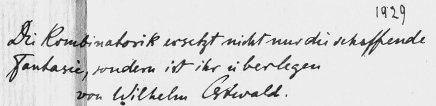 1929
Die Kombinatorik ersetzt nicht nur die schaffende
Fantasie, sondern ist ihr überlegen
von Wilhelm Ostwald.